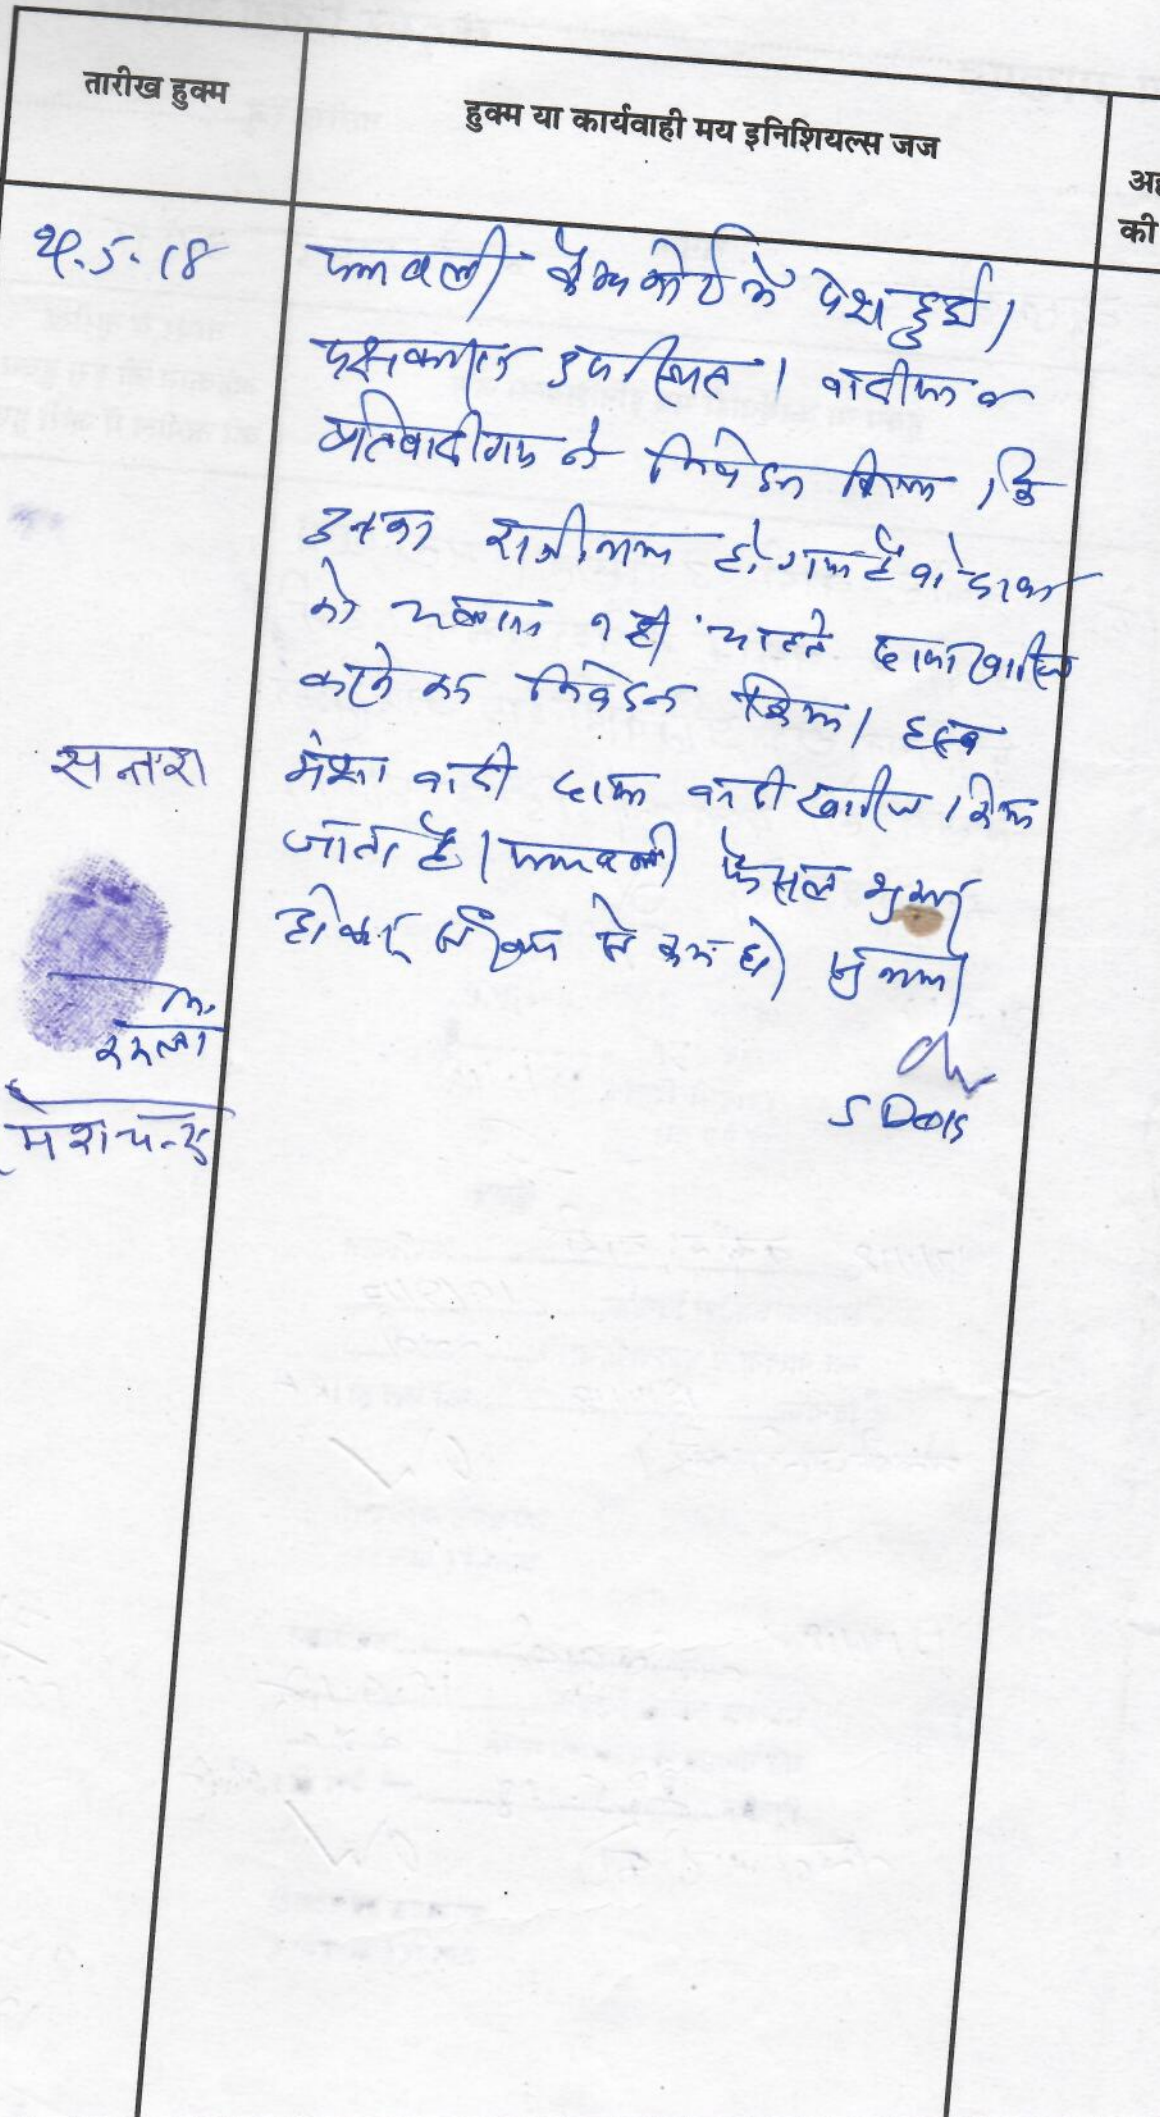 तारीख हुक्म
हुक्म या कार्यवाही मय इनिशियल्स जज
अह
की
5-18
पत्रावली कैम्प कोर्ट में पेश हुई।
पक्षकारान उपस्थित। वादीगण व
प्रतिवादीगण ने निवेदन किया कि
उनका राजीनामा हो गया है वो दावा
को चलाना नही चाहते दावा खारिज
करने का निवेदन किया।
वादी दावा वादी खारिज किया
जाता है। पत्रावली फैसल शुमार
होकर नम्बर से कम हो।
सन्तरा
नि.